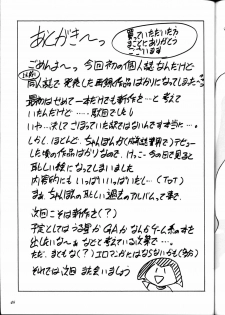 あとがき〜っ
買っていただいた方
まことにありがとう
ございます
ごめんよ〜っ 今回初の個人誌なんだけど
同人誌で発表した再録作品ばかりになってしまった〜
最初はせめて一本だけでも新作を〜と考えて
いたんだけど……敗回でした
いや……決してさぼっていた訳ではないです本当に…
しかし、ほとんど、ちゃんぽんか デビュー
した頃の作品ばかりなので、けっこー今の目で見ると
はずかしい絵になっていました
内容的にもいっぱいいっぱいだし…(ToT)
まぁ、ちゃんぽんの苦しい過去のアルバムって事で、
次回こそは新作を(?)
予定としてはうる星かGAかなんかゲーム系の本を
出したいな〜ぁ などと考えている次第で…
ただ、まともな(?)エロマンガとはならないかも(うおっ)
それでは次回 また会いましょう